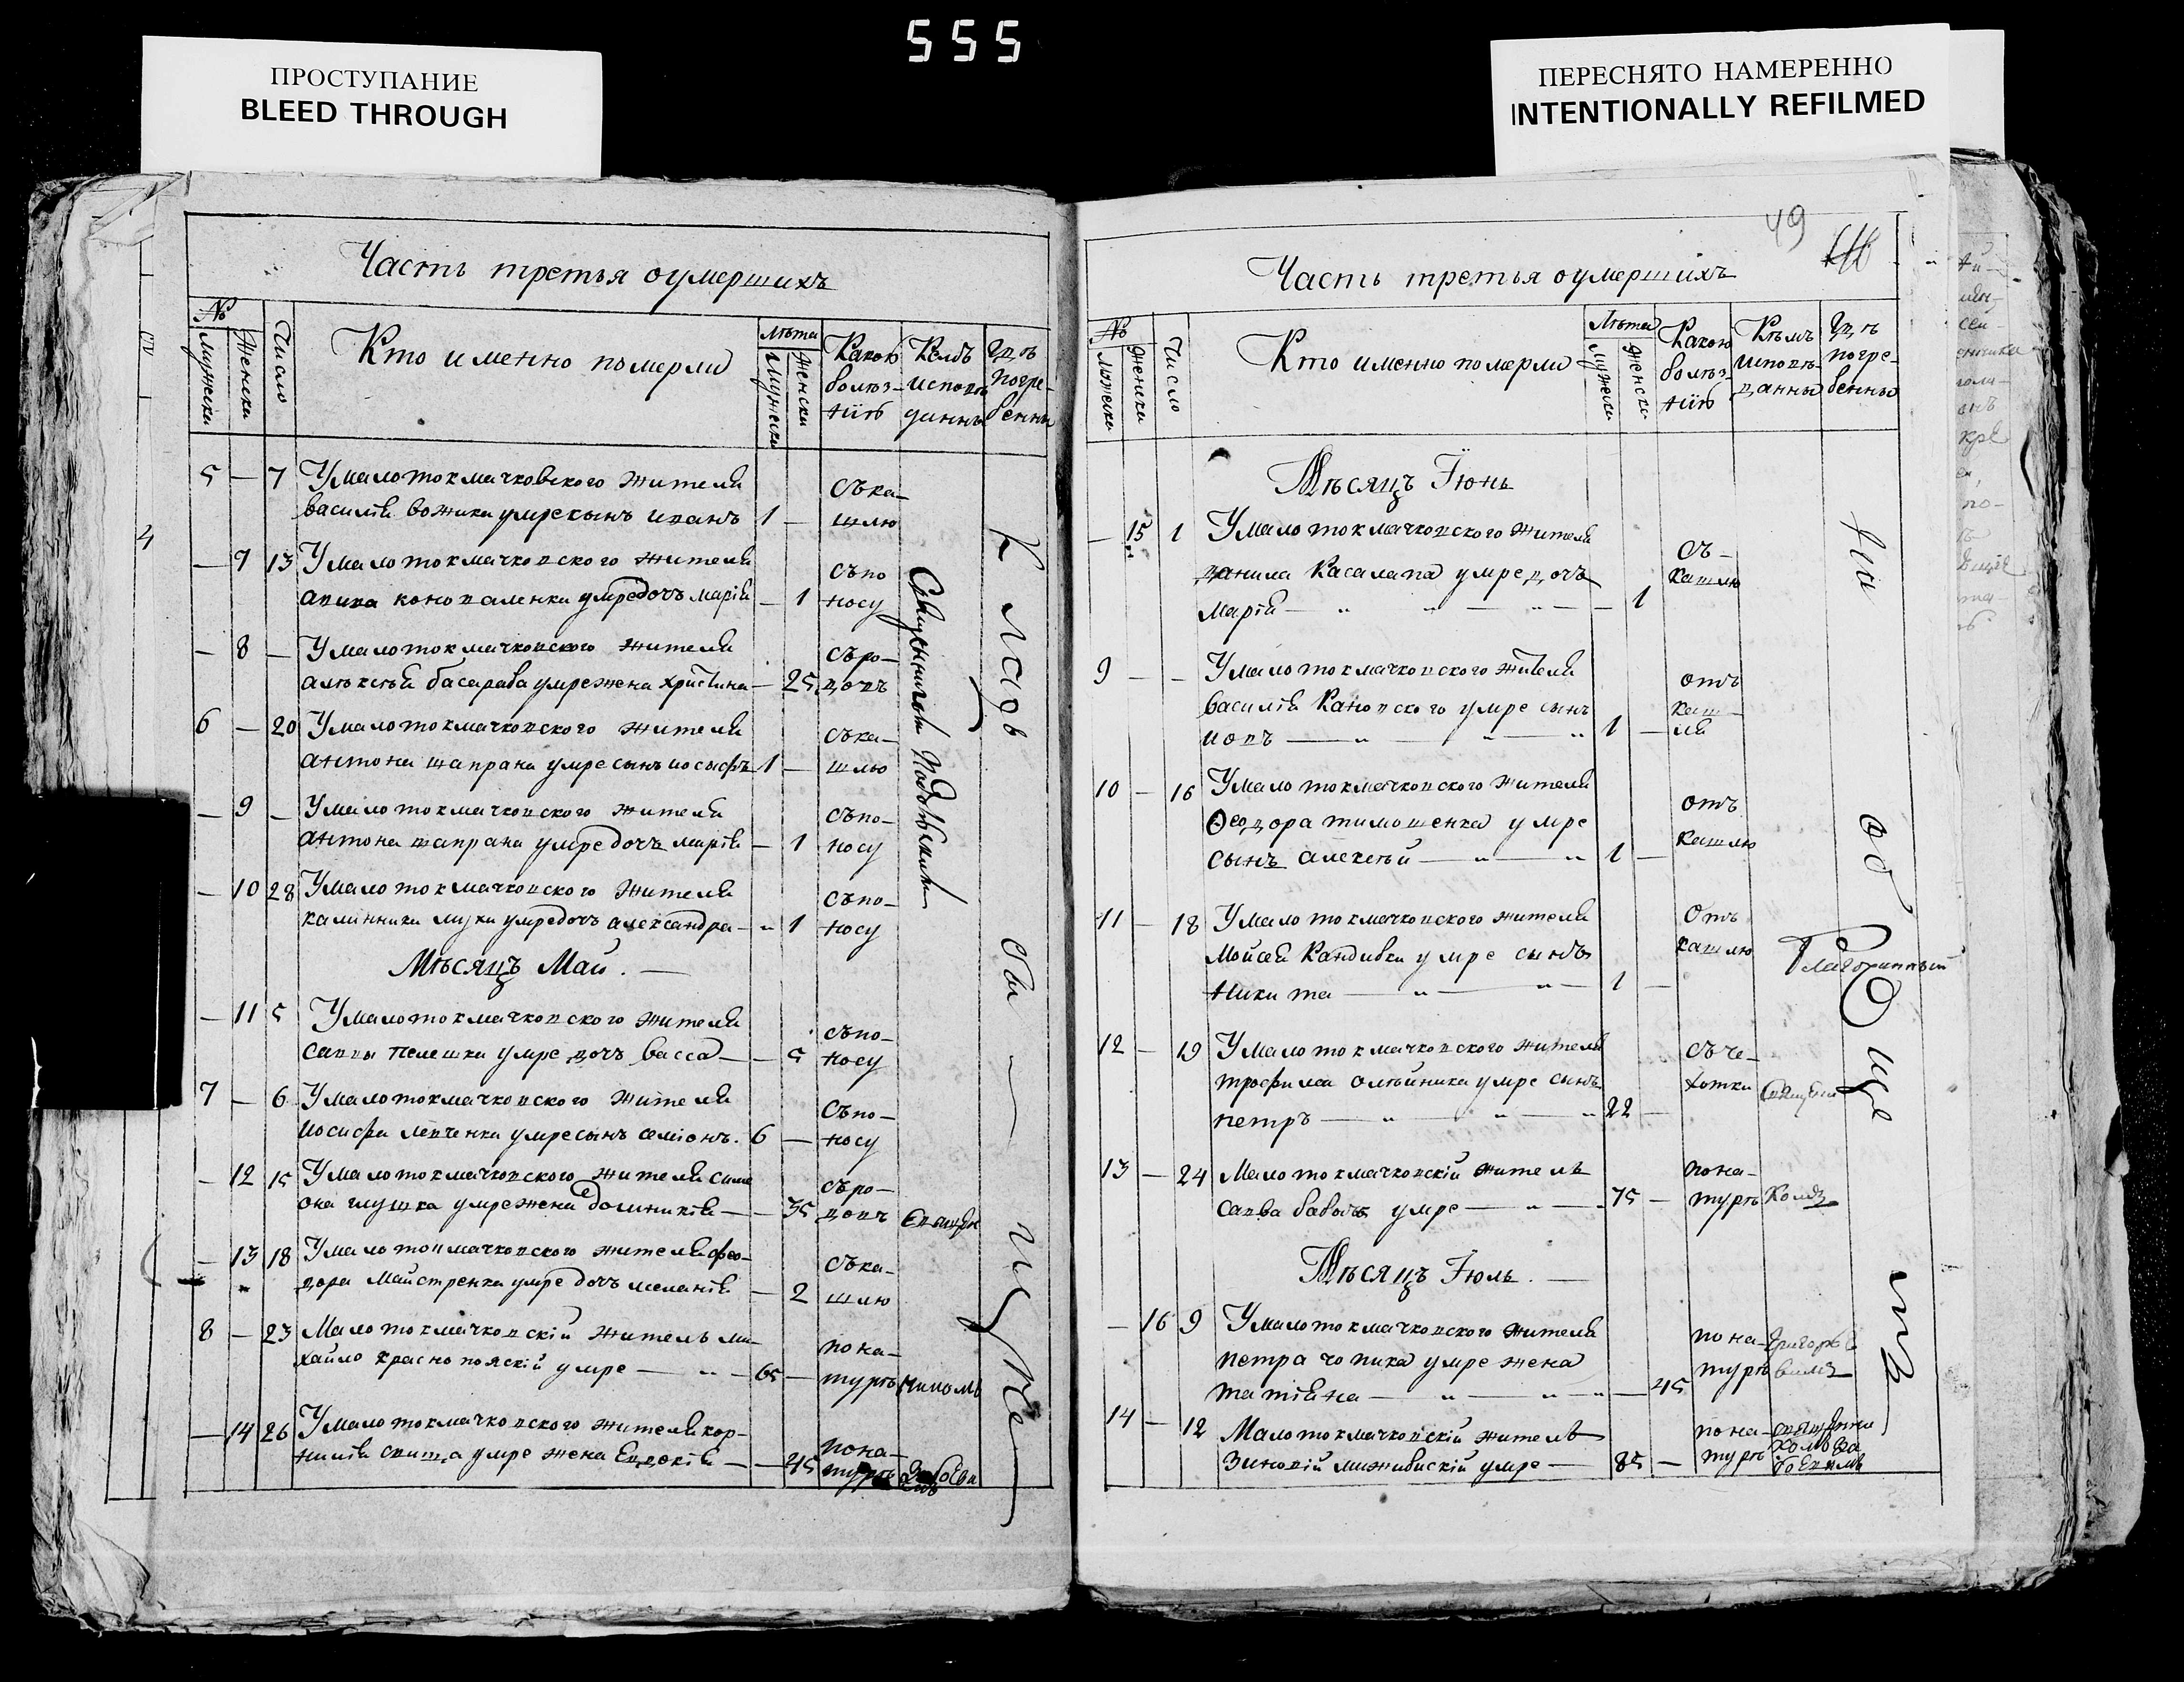 555
ПРОСТУПАНИЕ
BLEED THROUGH
ПЕРЕСНЯТО НАМЕРЕННО
INTENTIONALLY REFILMED
Часть третья оумершихъ
№
Мужески
Женски
Число
Кто именно померли
Лѣта
Мужески
Женски
Какою
болѣз-
нію
Кѣмъ
исповѣ
данны
Гдѣ
погре-
бенны
5 — 7 Умалотокмачковского жителя
василія вожики умре сынъ иванъ 1 —
съка-
шлю
— 7 13 Умалотокмачковского жителя
умре дочъ марія — 1
съпо
носу
— 8 — Умалотокмачковского жителя
алѣксѣя басарава умре жена христина — 25
съро-
довъ
6 — 20 Умалотокмачковского жителя
антона шапрана умре сынъ иосифъ 1 —
съка-
шлю
— 9 — Умалотокмачковского жителя
антона шапрана умре дочъ марія — 1
съпо-
носу
— 10 28 Умалотокмачковского жителя
калинника умре дочъ александра — 1
съпо-
носу
Мѣсяцъ Май. —
— 11 5 Умалотокмачковского жителя
саввы пелешки умре дочъ васса — — 5
съпо-
носу
7 — 6 Умалотокмачковского жителя
иосифа левченки умре сынъ семіонъ. 6 —
съпо-
носу
— 12 15 Умалотокмачковского жителя сими
она глушка умре жена домникія — — 35
съро-
довъ
— 13 18 Умалотокмачковского жителя фео-
дора Майстренка умре дочъ меланія — 2
съка-
шлю
8 — 23 Малотокмачковскій житель ми-
хайло краснопояскій умре — 65 —
пона-
турѣ
— 14 26 Умалотокмачковского жителя кор-
нилія свища умре жена Евдокія — — 45
пона-
турѣ
Священникомъ
Кладби
49
Часть третья оумершихъ
№
Мужески
Женски
Число
Кто именно померли
Лѣта
Мужески
Женски
Какою
болѣз-
нію
Кѣмъ
исповѣ-
данны
Гдѣ
погре-
бенны
Мѣсяцъ Іюнь
— 15 1 Умалотокмачковского жителя
данила Касалапа умре дочъ
марія — — 1
съ-
кашлю
9 — — Умалотокмачковского жителя
василія Кановского умре сынъ
иовъ — 1 —
отъ
каш-
ля
10 — 16 Умалотокмачковского жителя
Ѳеодора тимошенка умре
сынъ алексѣй — 1 —
отъ
кашлю
11 — 18 Умалотокмачковского жителя
Мойсея Кандибки умре сынъ
никита — 1 —
отъ
кашлю
Благочинный
12 — 19 Умалотокмачковского жителя
трофима олѣйника умре сынъ
петръ — 22 —
съче-
хотки
13 — 24 Малотокмачковскій житель
савва умре — 75 —
пона-
турѣ
Мѣсяцъ Іюль. —
— 16 9 Умалотокмачковского жителя
петра чопика умре жена
татіяна — — 45
пона-
турѣ
14 — 12 Малотокмачковскій житель
Зиновій миживискій умре — 85 —
пона-
турѣ
на